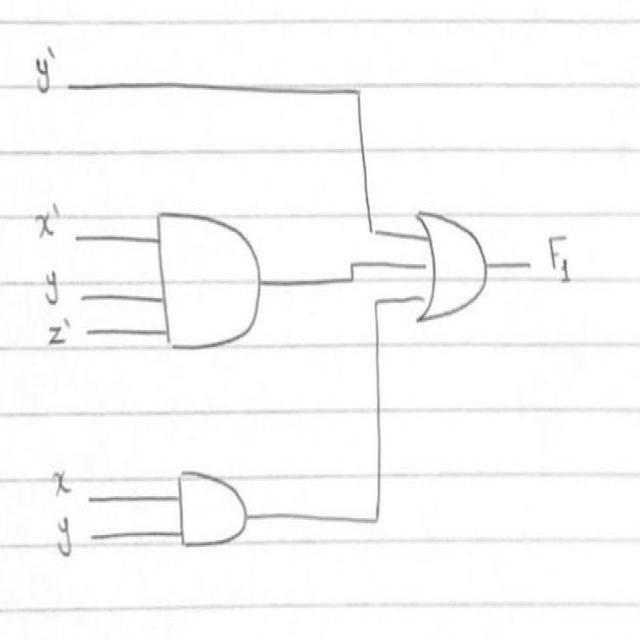 y'
x'
y
z'
F₁
x
y